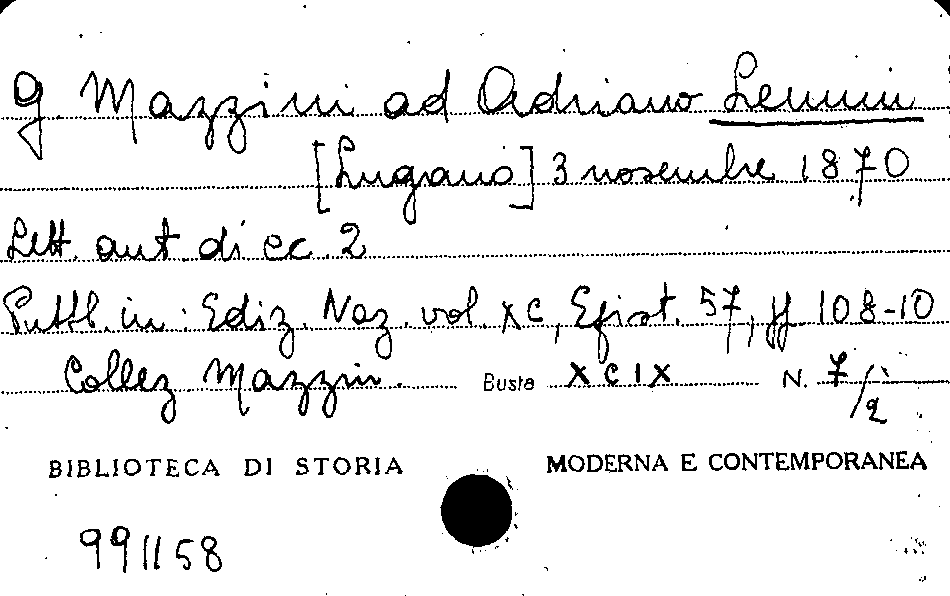 G. Mazzini ad Adriano Lemmi
[Lugano] 3 novembre 1870
Lett. aut. di cc. 2
Pubbl. in: Ediz. Naz. vol. XC, Epist. 57, pp 108-10
Collez Mazzini. Busta XCIX N. 7/2
BIBLIOTECA DI STORIA MODERNA E CONTEMPORANEA
991158